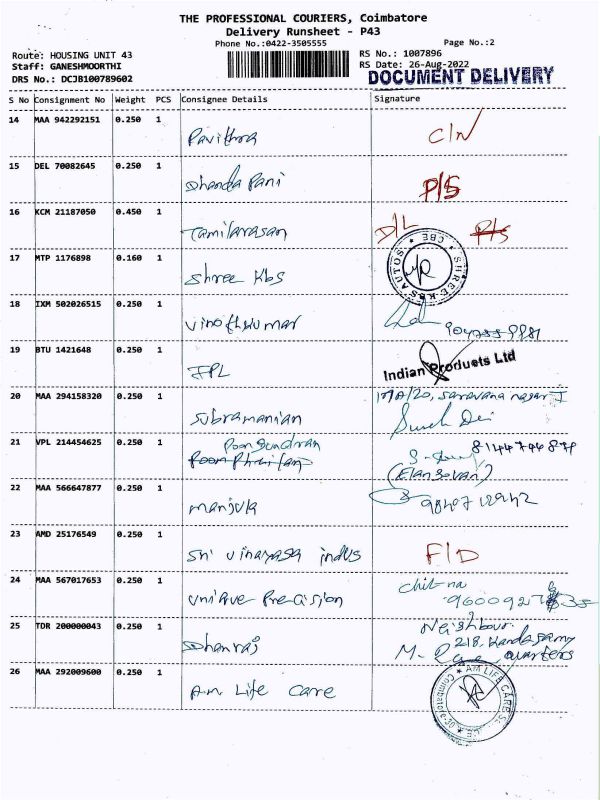 THE PROFESSIONAL COURIERS, Coimbatore
Delivery Runsheet - P43
Phone No.:0422-3505555
Page No.:2
Route: HOUSING UNIT 43
RS No.: 1007896
Staff: GANESHMOORTHI
RS Date: 26-Aug-2022
DRS No.: DCJB100789602
DOCUMENT DELIVERY
S No Consignment No Weight PCS Consignee Details Signature
14 MAA 942292151 0.250 1
Pavithra C/N
15 DEL 70082645 0.250 1
Dhanda Pani P/S
16 KCM 21187050 0.450 1
Tamilarasan D/L P/S
17 MTP 1176898 0.160 1
Shree Kbs SHREE KBS AUTOS CBE
18 IXM 502026515 0.250 1
Vinothkumar
19 BTU 1421648 0.250 1
IPL Indian Products Ltd
20 MAA 294158320 0.250 1 saravana nagar
Subramanian
21 VPL 214454625 0.250 1
(Elangovan)
22 MAA 566647877 0.250 1
Manjula
23 AMD 25176549 0.250 1
Sri Vinayaga indus F/D
24 MAA 567017653 0.250 1
Unique Precision
25 TDR 200000043 0.250 1 Neighbour
Dhanraj 218, Kandasamy
quarters
26 MAA 292009600 0.250 1
Am Life Care AM LIFE CARE